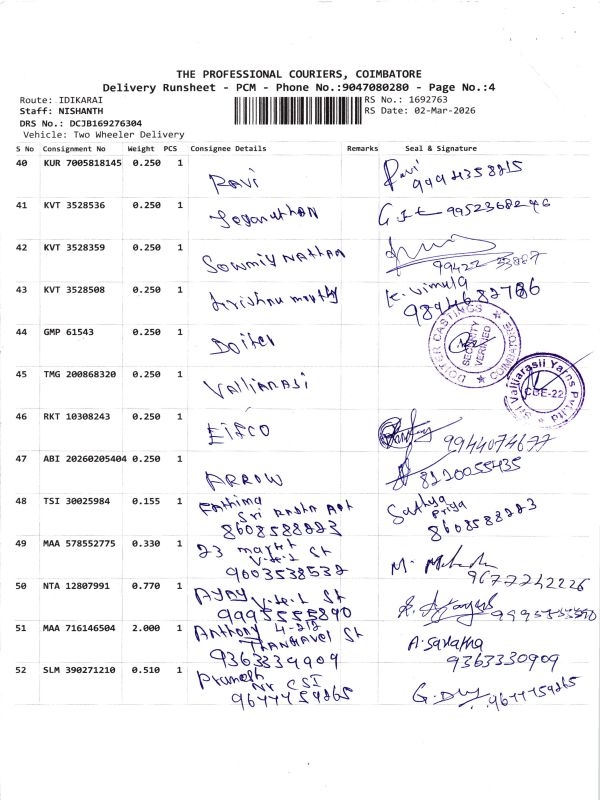 THE PROFESSIONAL COURIERS, COIMBATORE
Delivery Runsheet - PCM - Phone No.:9047080280 - Page No.:4
Route: IDIKARAI RS No.: 1692763
Staff: NISHANTH RS Date: 02-Mar-2026
DRS No.: DCJB169276304
Vehicle: Two Wheeler Delivery
S No Consignment No Weight PCS Consignee Details Remarks Seal & Signature
40 KUR 7005818145 0.250 1 Ravi Ravi
99943 58815
41 KVT 3528536 0.250 1 Loganathan 9952368246
42 KVT 3528359 0.250 1 Sowmiy Nathan
99422 33887
43 KVT 3528508 0.250 1 K. Vimula
9894682786
44 GMP 61543 0.250 1 Doiter
DOITER CASTINGS COIMBATORE
SECURITY VERIFIED
45 TMG 200868320 0.250 1 Valliarasi
Sri Valliarasii Yarns Pvt.ltd
CBE-22
46 RKT 10308243 0.250 1 EIFCO 9944074677
47 ABI 20260205404 0.250 1 ARROW 8220055435
48 TSI 30025984 0.155 1 Fathima Sathya
Sri Priya
8608588823 8608588223
49 MAA 578552775 0.330 1 23 St
9003538532 9677242226
50 NTA 12807991 0.770 1 Ajay St
9995555890
51 MAA 716146504 2.000 1 Anthony 4-212 A. Saratha
Thangavel St
9363339909 9363330909
52 SLM 390271210 0.510 1 Pramesh
Nr CSI
9677759265 9677759265